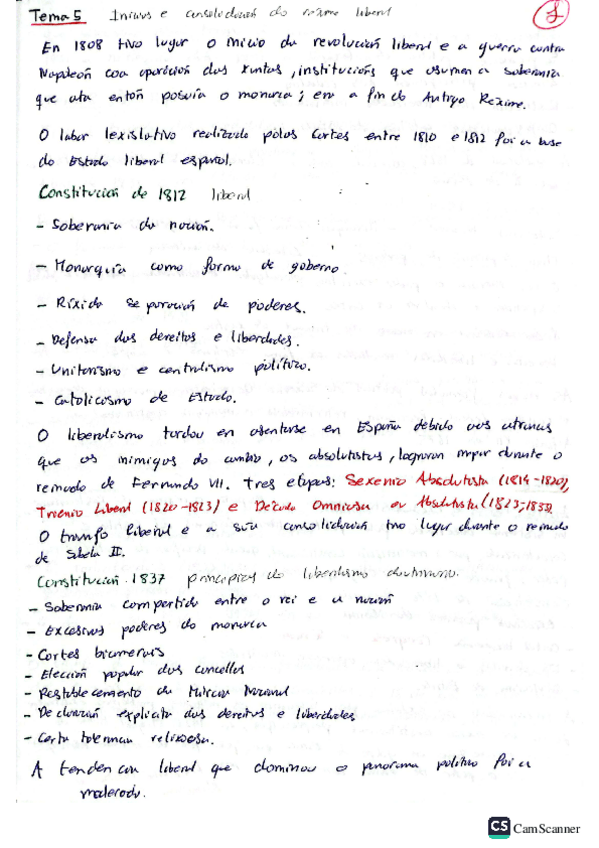 Tema 5 Inicios e consolidación do réxime liberal
1
En 1808 tivo lugar o inicio da revolución liberal e a guerra contra
Napoleón coa aparición das Xuntas, institucións que asumen a soberanía
que ata entón posuía o monarca; era a fin do Antigo Réxime.
O labor lexislativo realizado polas Cortes entre 1810 e 1812 foi a base
do Estado liberal español.
Constitución de 1812 liberal
- Soberanía da nación.
- Monarquía como forma de goberno.
- Ríxida separación de poderes.
- Defensa dos dereitos e liberdades.
- Unitarismo e centralismo político.
- Catolicismo de Estado.
O liberalismo tardou en asentarse en España debido aos atrancos
que os inimigos do cambio, os absolutistas, lograron impor durante o
reinado de Fernando VII. Tres etapas: Sexenio Absolutista (1814-1820),
Trienio Liberal (1820-1823) e Década Ominosa ou Absolutista (1823-1833).
O triunfo liberal e a súa consolidación tivo lugar durante o reinado
de Sabela II.
Constitución 1837 principios do liberalismo doutrinario.
- Soberanía compartida entre o rei e a nación
- Excesivos poderes do monarca
- Cortes bicamerais
- Elección popular dos concellos
- Restablecemento da Milicia Nacional
- Declaración explícita dos dereitos e liberdades
- Certa tolerancia relixiosa.
A tendencia liberal que dominou o panorama político foi a
moderada.
CS CamScanner